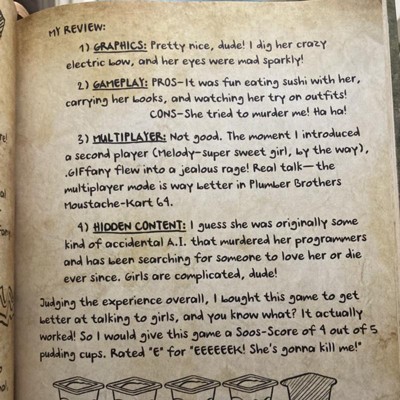 MY REVIEW:
1) GRAPHICS: Pretty nice, dude! I dig her crazy
electric bow, and her eyes were mad sparkly!
2) GAMEPLAY: PROS-It was fun eating sushi with her,
carrying her books, and watching her try on outfits!
CONS-She tried to murder me! Ha ha!
3) MULTIPLAYER: Not good. The moment I introduced
a second player (Melody-super sweet girl, by the way),
.GIFfany flew into a jealous rage! Real talk—the
multiplayer mode is way better in Plumber Brothers
Moustache-Kart 64.
4) HIDDEN CONTENT: I guess she was originally some
kind of accidental A.I. that murdered her programmers
and has been searching for someone to love her or die
ever since. Girls are complicated, dude!
Judging the experience overall, I bought this game to get
better at talking to girls, and you know what? It actually
worked! So I would give this game a Soos-Score of 4 out of 5
pudding cups. Rated "E" for "EEEEEEK! She's gonna kill me!"